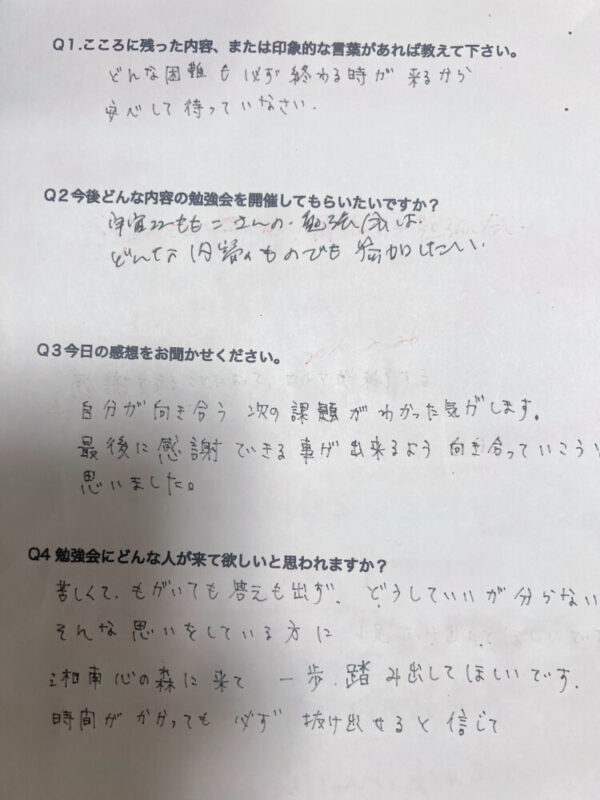 Q1.こころに残った内容、または印象的な言葉があれば教えて下さい。
どんな困難も必ず終わる時が来るから
安心して待っていなさい.
Q2今後どんな内容の勉強会を開催してもらいたいですか?
ももこさんの勉強会は、
どんな内容のものでも参加したい.
Q3今日の感想をお聞かせください。
自分が向き合う次の課題がわかった気がします。
最後に感謝できる事が出来るよう向き合っていこうと
思いました。
Q4勉強会にどんな人が来て欲しいと思われますか?
苦しくて、もがいても答えも出ず、どうしていいが分らない
そんな思いをしている方に
湘南心の森に来て 一歩、踏み出してほしいです.
時間がかかっても必ず抜け出せると信じて